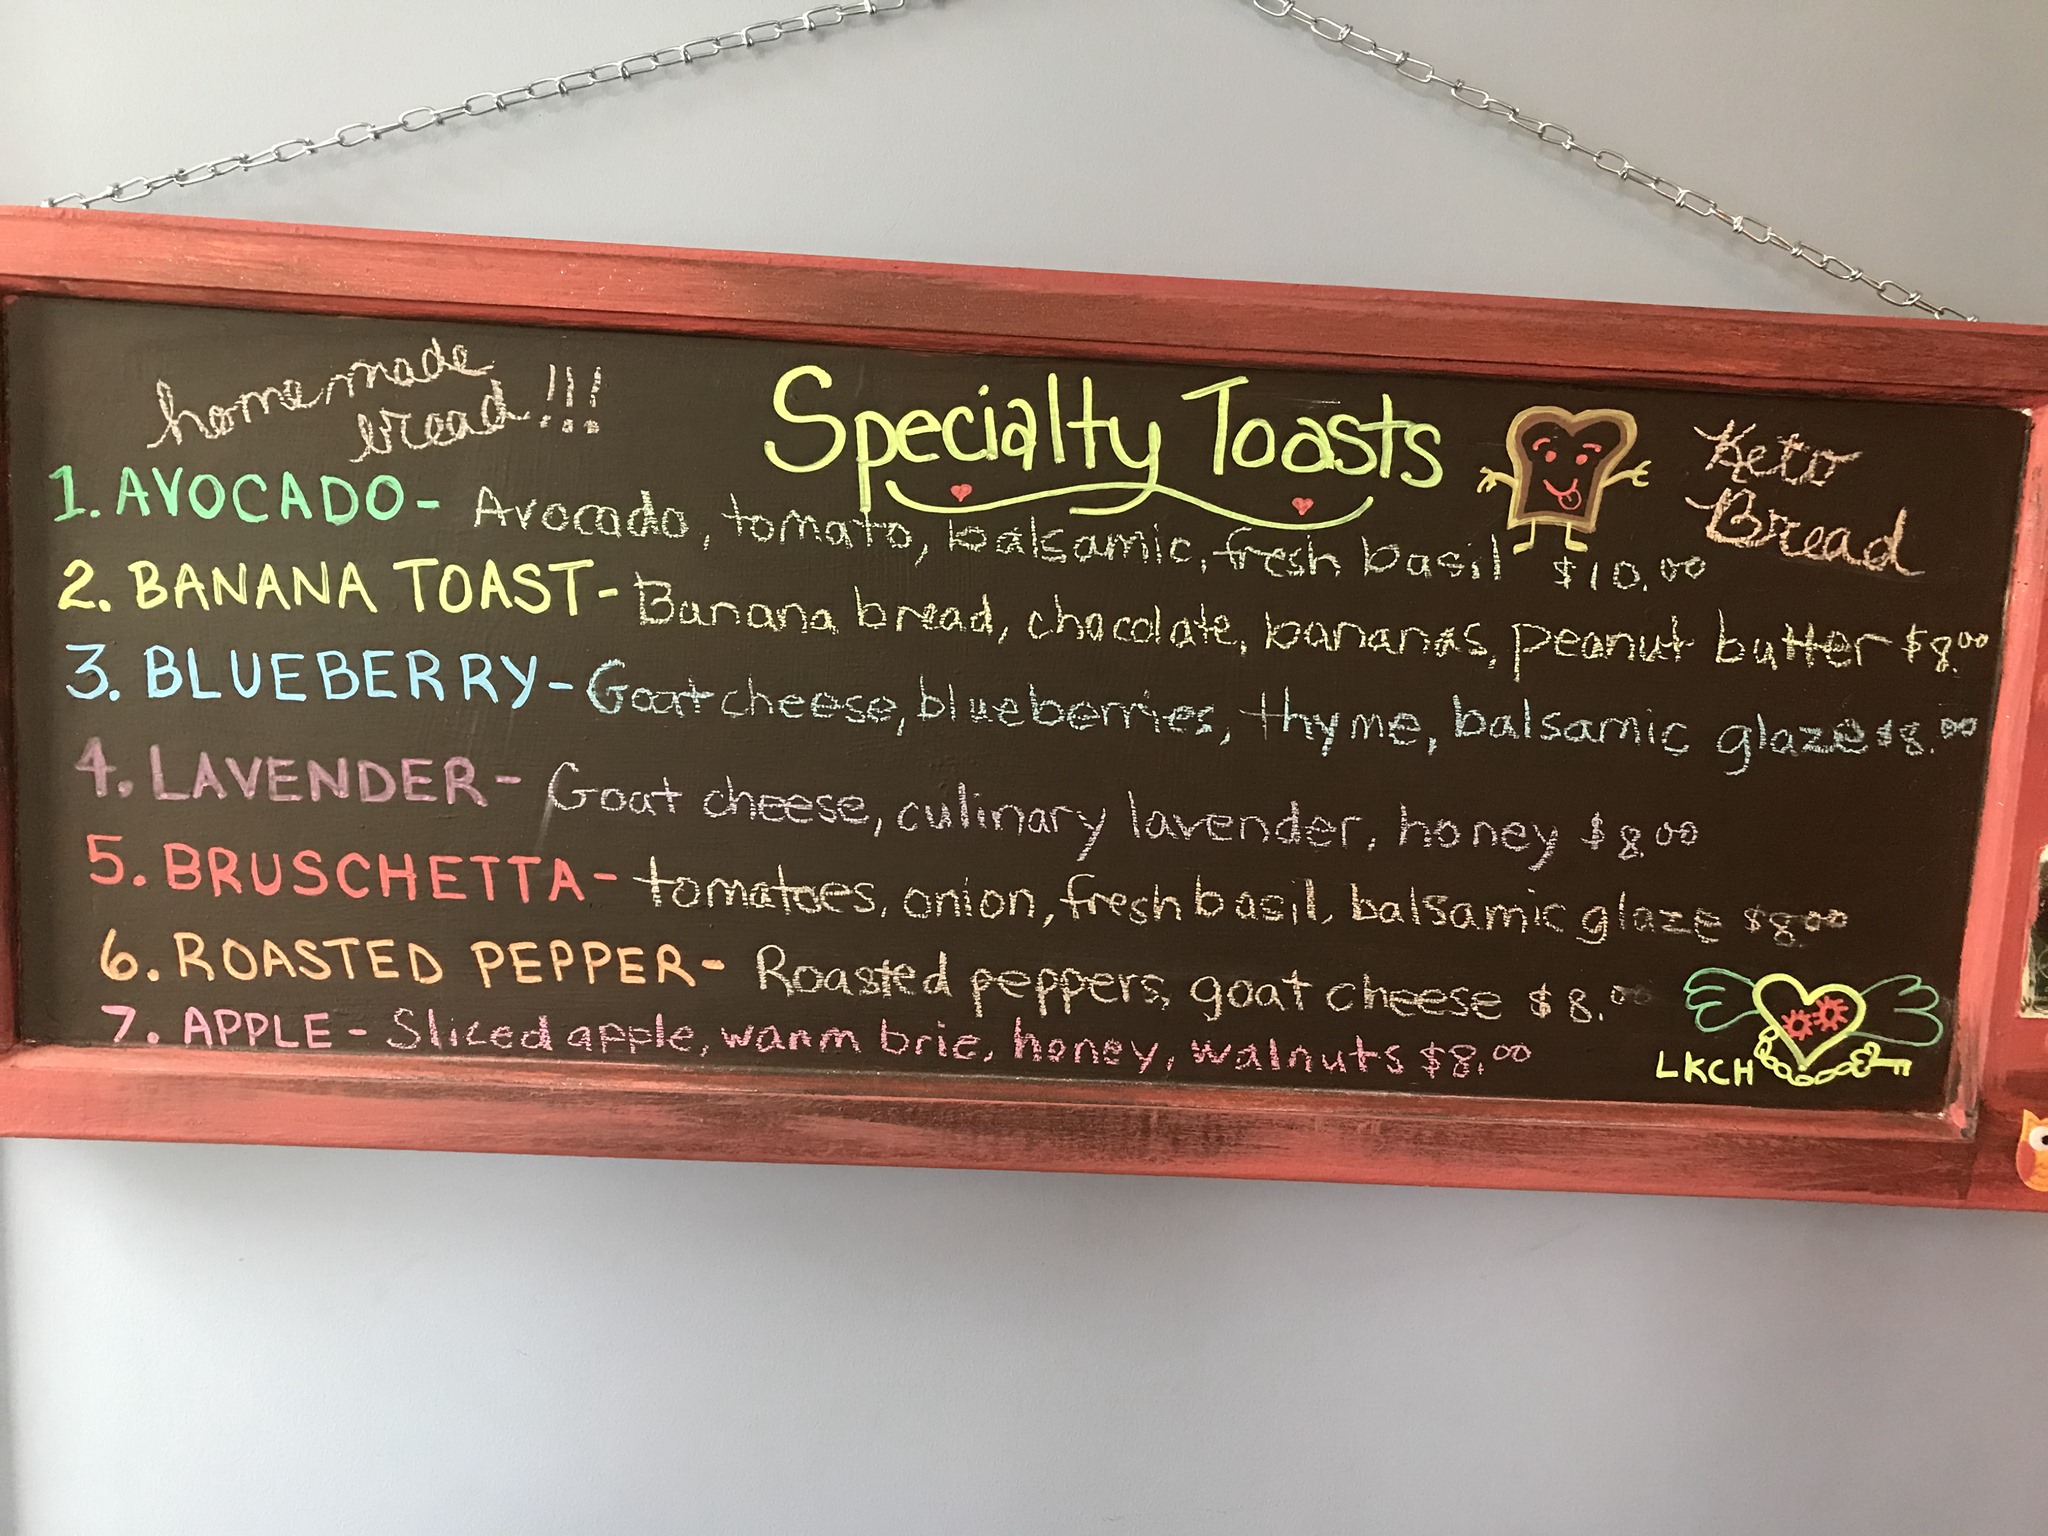 homemade
bread!!!
Specialty Toasts
Keto
Bread
1. AVOCADO- Avocado, tomato, balsamic, fresh basil $10.00
2. BANANA TOAST- Banana bread, chocolate, bananas, peanut butter $8.00
3. BLUEBERRY- Goat cheese, blueberries, thyme, balsamic glaze $8.00
4. LAVENDER- Goat cheese, culinary lavender, honey $8.00
5. BRUSCHETTA- tomatoes, onion, fresh basil, balsamic glaze $8.00
6. ROASTED PEPPER- Roasted peppers, goat cheese $8.00
7. APPLE- Sliced apple, warm brie, honey, walnuts $8.00
LKCH